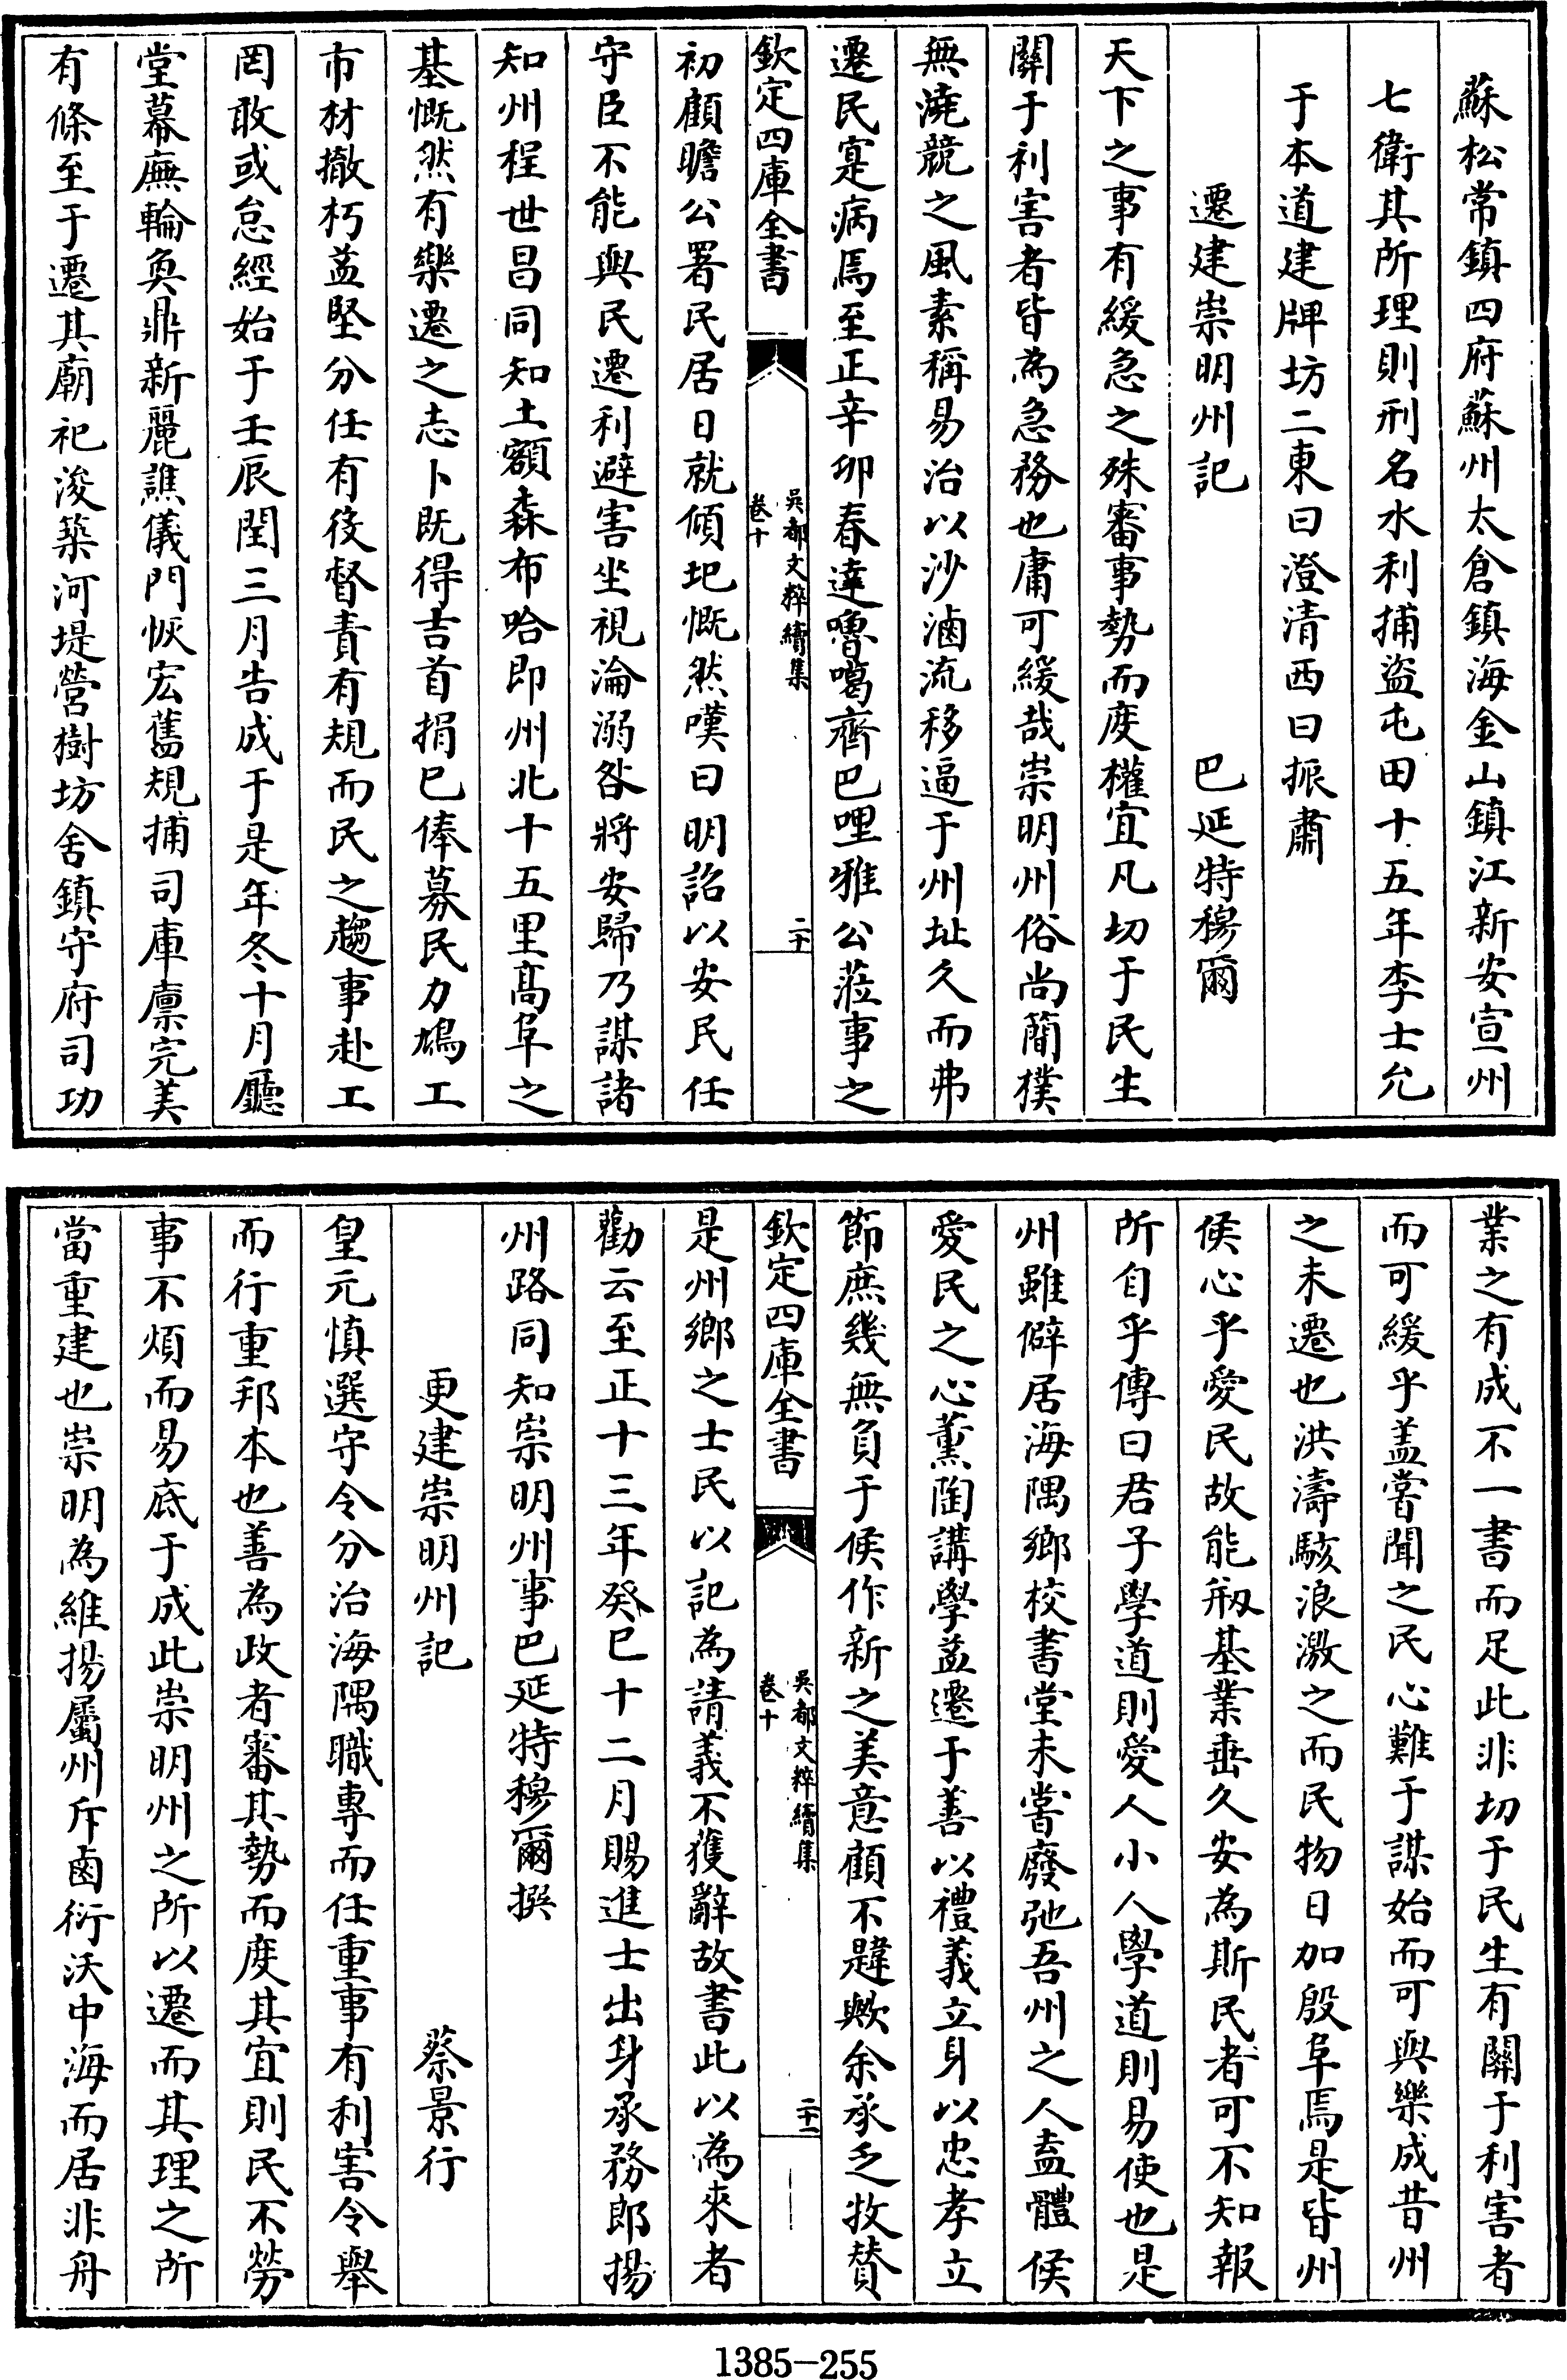 蘇松常鎮四府蘇州太倉鎮海金山鎮江新安宣州
七衛其所理則刑名水利捕盜屯田十五年李士允
于本道建牌坊二東曰澄清西曰振肅
遷建崇明州記 巴延特穆爾
天下之事有緩急之殊審事勢而度權宜凡切于民生
關于利害者皆為急務也庸可緩哉崇明州俗尚簡樸
無澆競之風素稱易治以沙滷流移逼于州址久而弗
遷民寔病焉至正辛卯春達嚕噶齊巴哩雅公蒞事之
欽定四庫全書 吳都文粹續集 卷十 二十
初顧瞻公署民居日就傾圯慨然嘆曰明詔以安民任
守臣不能與民遷利避害坐視淪溺咎將安歸乃謀諸
知州程世昌同知土額森布哈即州北十五里高阜之
基慨然有樂遷之志卜既得吉首捐已俸募民力鳩工
市材撤朽益堅分任有役督責有規而民之趨事赴工
罔敢或怠經始于壬辰閏三月告成于是年冬十月廳
堂幕廡輪奐鼎新麗譙儀門恢宏舊規捕司庫廩完美
有條至于遷其廟祀浚築河堤營樹坊舍鎮守府司功
業之有成不一書而足此非切于民生有關于利害者
而可緩乎盖嘗聞之民心難于謀始而可與樂成昔州
之未遷也洪濤駭浪激之而民物日加殷阜焉是皆州
侯心乎愛民故能剏基業垂久安為斯民者可不知報
所自乎傳曰君子學道則愛人小人學道則易使也是
州雖僻居海隅鄉校書堂未嘗廢弛吾州之人盍體侯
愛民之心薰陶講學益遷于善以禮義立身以忠孝立
節庶幾無負于侯作新之美意顧不韙歟余承乏牧贊
欽定四庫全書 吳都文粹續集 卷十 二十一
是州鄉之士民以記為請義不獲辭故書此以為來者
勸云至正十三年癸巳十二月賜進士出身承務郎揚
州路同知崇明州事巴延特穆爾撰
更建崇明州記 蔡景行
皇元慎選守令分治海隅職專而任重事有利害令舉
而行重邦本也善為政者審其勢而度其宜則民不勞
事不煩而易底于成此崇明州之所以遷而其理之所
當重建也崇明為維揚屬州斥鹵衍沃中海而居非舟
1385-255